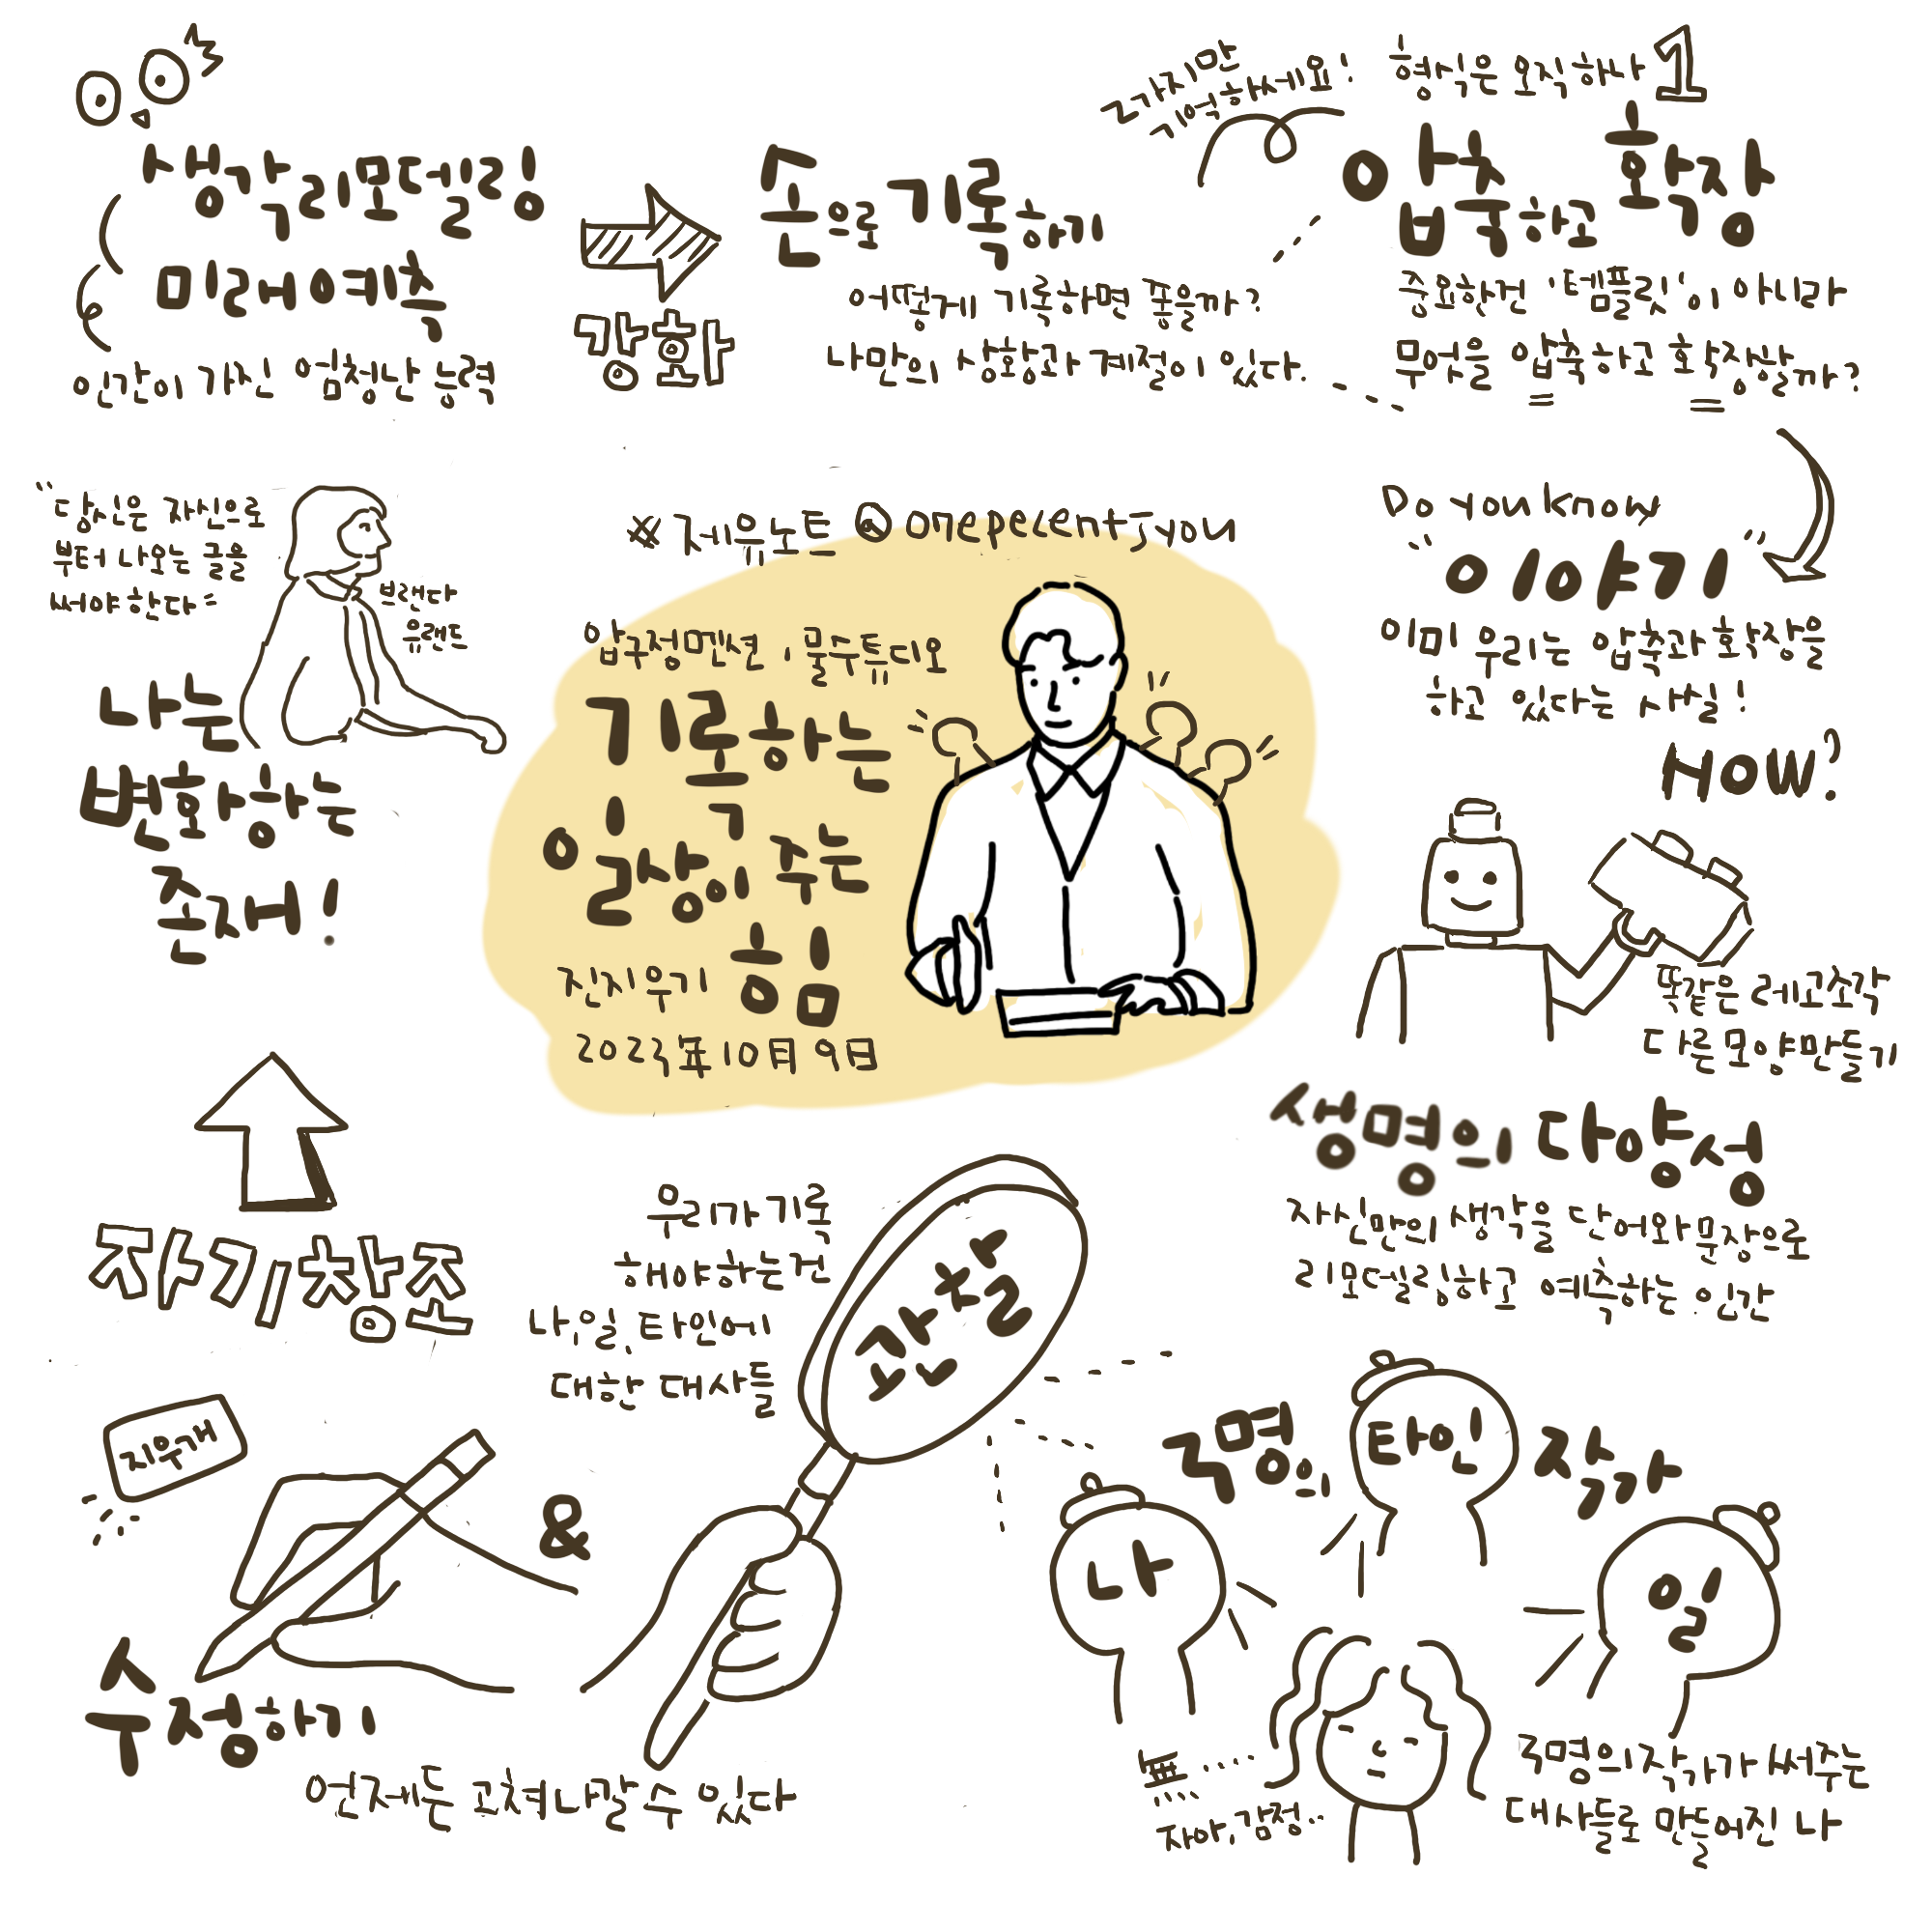 생각리모델링
미래예측
인간이 가진 엄청난 능력
강화
손으로 기록하기
어떻게 기록하면 좋을까?
나만의 상황과 계절이 있다.
2가지만
기억하세요!
형식은 오직 하나 1
압축하고 확장
중요한건 '템플릿'이 아니라
무엇을 압축하고 확장할까?
Do you know
"이야기"
이미 우리는 압축과 확장을
하고 있다는 사실!
HOW?
똑같은 레고조각
다른 모양만들기
생명의 다양성
자신만의 생각을 단어와 문장으로
리모델링하고 예측하는 인간
※ 제유노트 @onepecentjyou
압구정멘션, 물수튜디오
기록하는
일상이 주는
힘
진지우기
2023年10月9日
"당신은 자신으로
부터 나오는 글을
써야한다"
브랜다
유랜드
나는
변화하는
존재!
자기창조
우리가 기록
해야하는건
나,일,타인에
대한 대사들
관찰
3명의 작가
타인
나
일
無....
자아,감정..
3명의 작가가 써주는
대사들로 만들어진 나
지우개
&
수정하기
언제든 고쳐나갈 수 있다